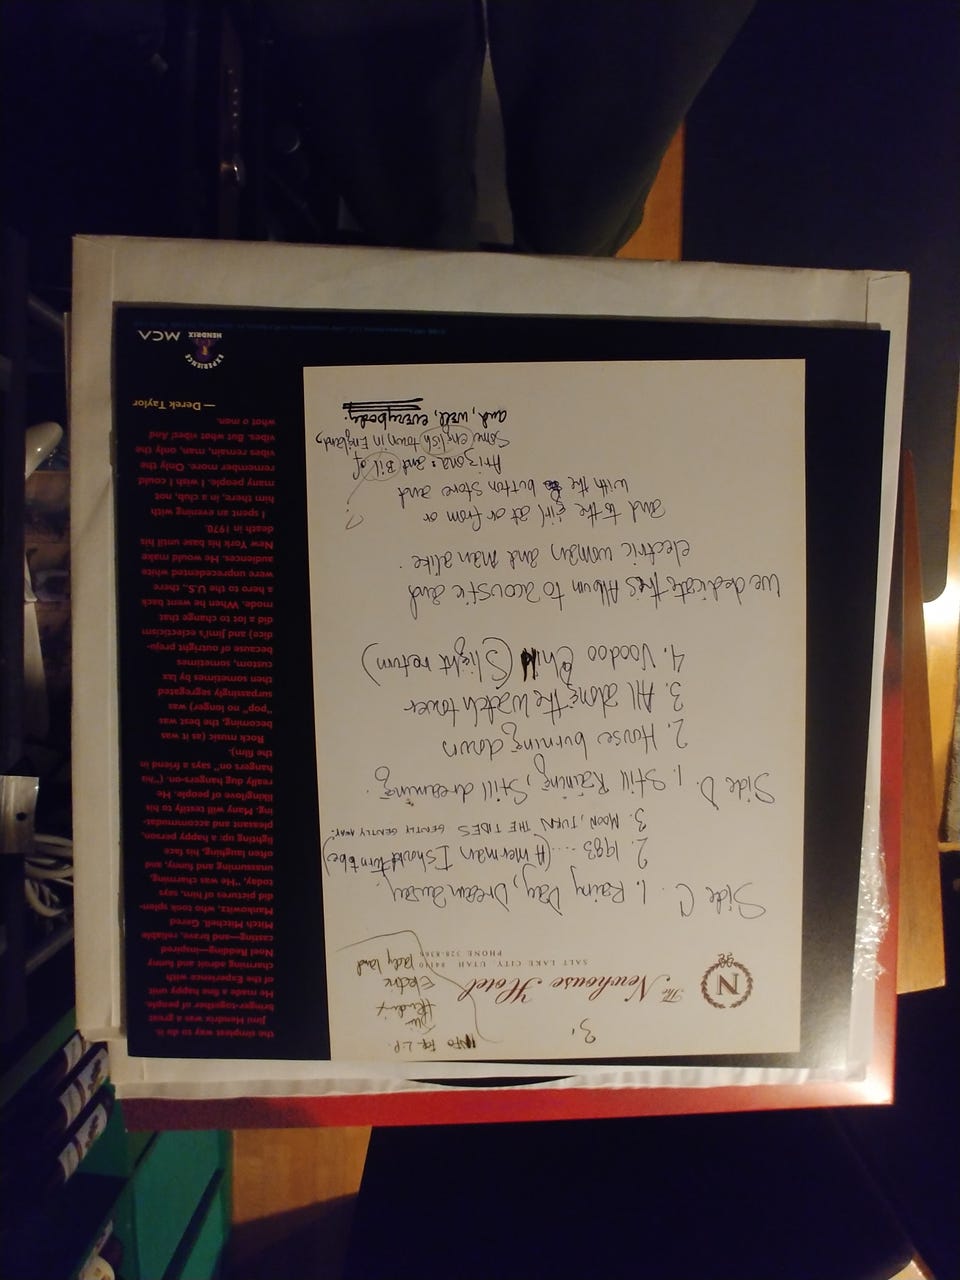 3.
INFO FOR L.P.
Jimi
Hendrix
Electric
Lady land
N
The Newhouse Hotel
SALT LAKE CITY, UTAH 84110
PHONE 328-8365
Side C 1. Rainy Day, Dream away.
2. 1983..... (A merman I should turn to be)
3. MOON, TURN THE TIDES GENTLY GENTLY AWAY.
Side D. 1. Still Raining, Still dreaming.
2. House burning down
3. All along the Watch tower
4. Voodoo Chil (Slight return)
We dedicate this Album to acoustic and
electric woman and man alike.
and to the girl at or from or
with the button store and ?
Arizona: and Bil of
Some english town in England,
and, well, everybody.
the simplest way to do is.
Jimi Hendrix was a great
bringer-together of people.
He made a fine happy unit
of the Experience with
charming adroit and funny
Noel Redding—inspired
casting—and brave, reliable
Mitch Mitchell. Gered
Mankowitz, who took splen-
did pictures of him, says
today, "He was charming,
unassuming and funny, and
often laughing, his face
lighting up: a happy person,
pleasant and accommodat-
ing. Many will testify to his
likinglove of people. He
really dug hangers-on. ("his
hangers on" says a friend in
the film).
Rock music (as it was
becoming, the best was
"pop" no longer) was
surpassingly segregated
then sometimes by lax
custom, sometimes
because of outright preju-
dice) and Jimi's eclecticism
did a lot to change that
mode. When he went back
a hero to the U.S., there
were unprecedented white
audiences. He would make
New York his base until his
death in 1970.
I spent an evening with
him there, in a club, not
many people. I wish I could
remember more. Only the
vibes remain, man, only the
vibes. But what vibes! And
what a man.
— Derek Taylor
EXPERIENCE
HENDRIX
MCA